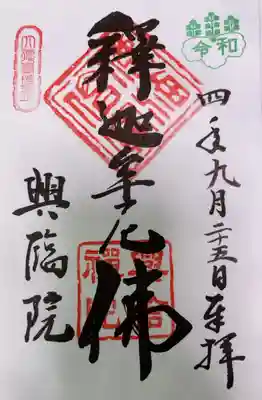 令和
四年九月二十五日奉拝
釋迦牟尼佛
興臨院